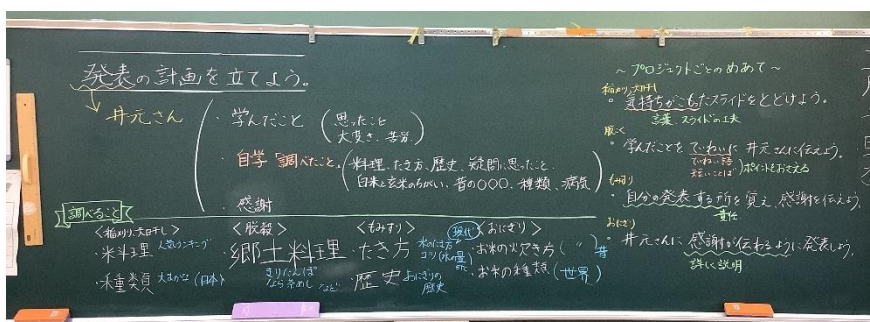 発表の計画を立てよう。
井元さん
・学んだこと（思ったこと
大変さ、苦労）
・自学「調べたこと」（料理、たき方、歴史、疑問に思ったこと、
白米と玄米のちがい、昔の〇〇〇、種類、病気）
・感謝
調べること
<稲刈り、天日干し>
・米料理 人気ランキング
・種類 大まかな（日本）
<脱穀>
郷土料理
きりたんぽ
など
<もみすり>
・たき方
・歴史 おにぎりの
歴史
現代
<おにぎり>
・お米の炊き方（〃）昔
・お米の種類（世界）
～プロジェクトごとのめあて～
稲刈り、天日干し
・気持ちがこもったスライドをとどけよう。
言葉、スライドの工夫
・学んだことをていねいに井元さんに伝えよう。
ていねい語
ポイントをおさえる
もみすり
・自分の発表する所を覚え、感謝を伝えよう。
責任
おにぎり
井元さんに感謝が伝わるように発表しよう。
詳しく説明